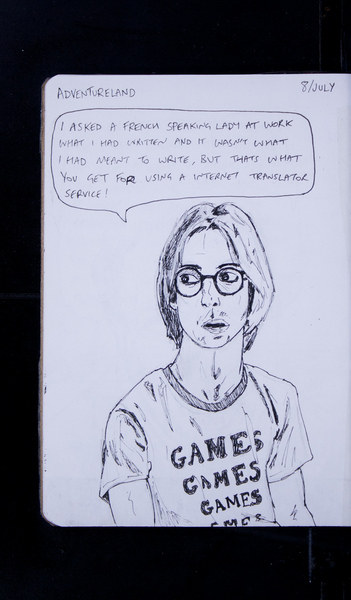 ADVENTURELAND
8/JULY
I ASKED A FRENCH SPEAKING LADY AT WORK
WHAT I HAD WRITTEN AND IT WASN'T WHAT
I HAD MEANT TO WRITE, BUT THATS WHAT
YOU GET FOR USING A INTERNET TRANSLATOR
SERVICE!
GAMES
GAMES
GAMES
GAMES